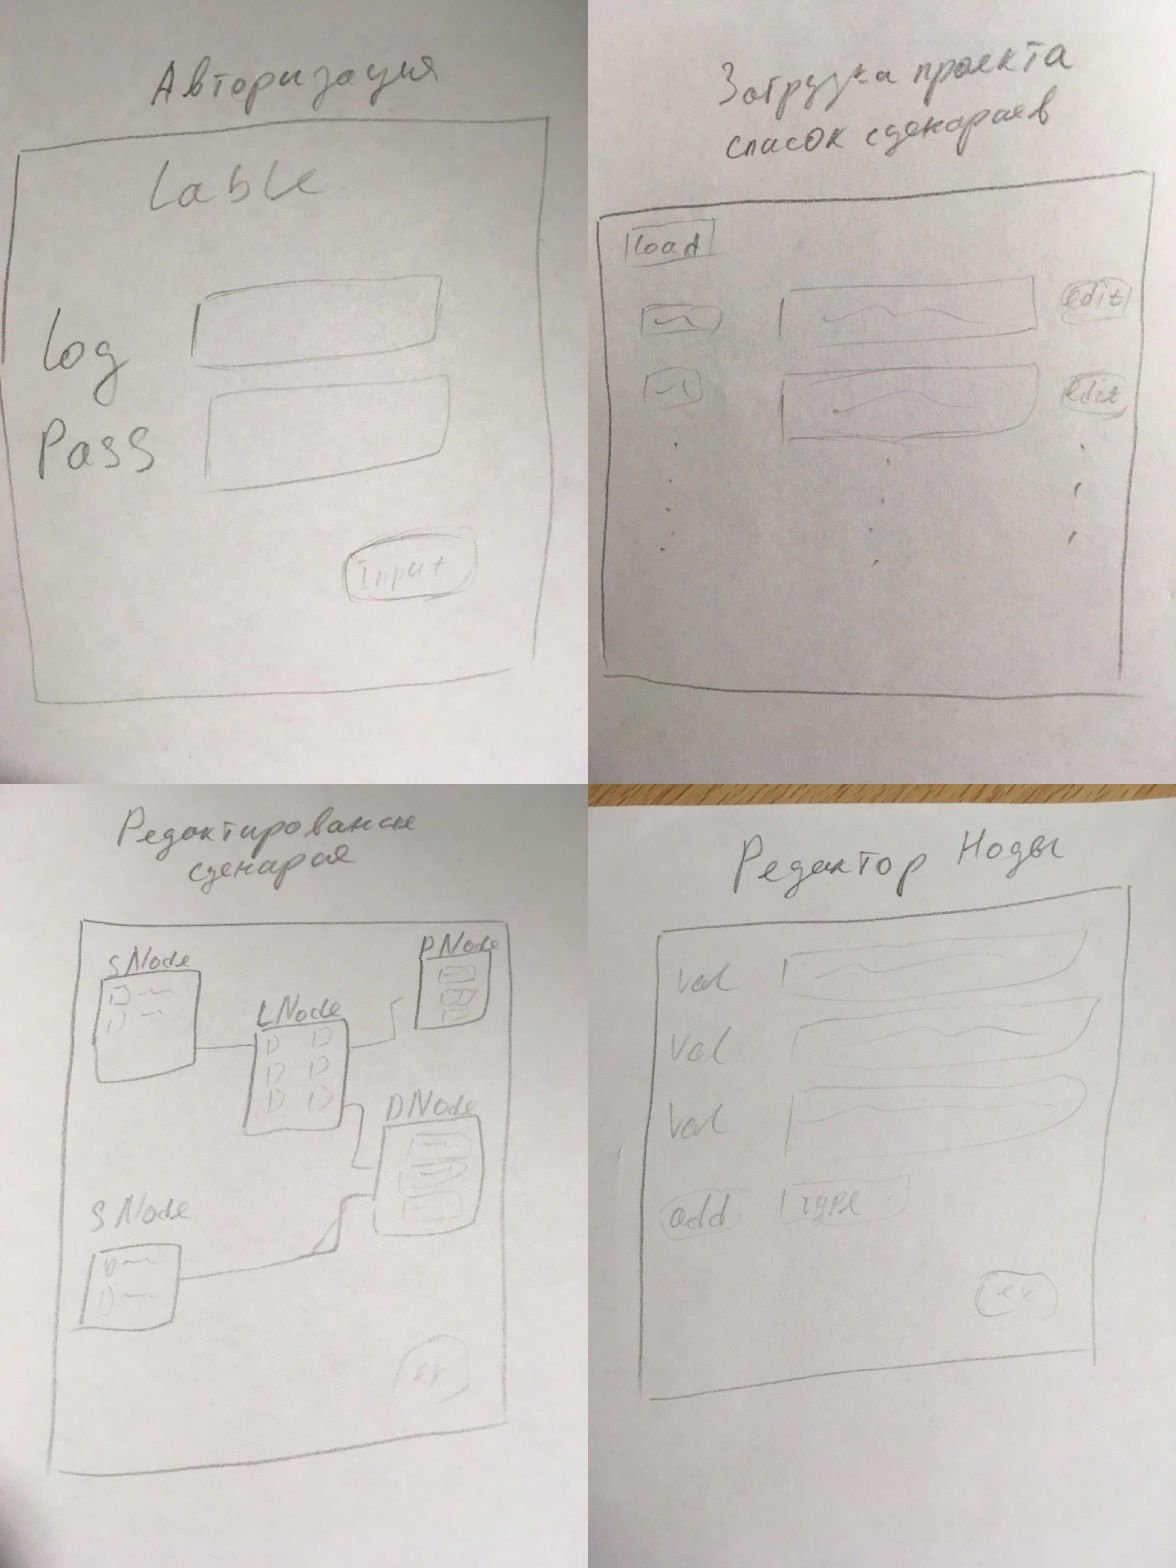 Авторизация
Lable
Log
Pass
Input
Загрузка проекта
список сценариев
load
edit
edit
Редактирование
сценария
SNode
PNode
LNode
DNode
SNode
Редактор Ноды
Val
Val
Val
add
Type